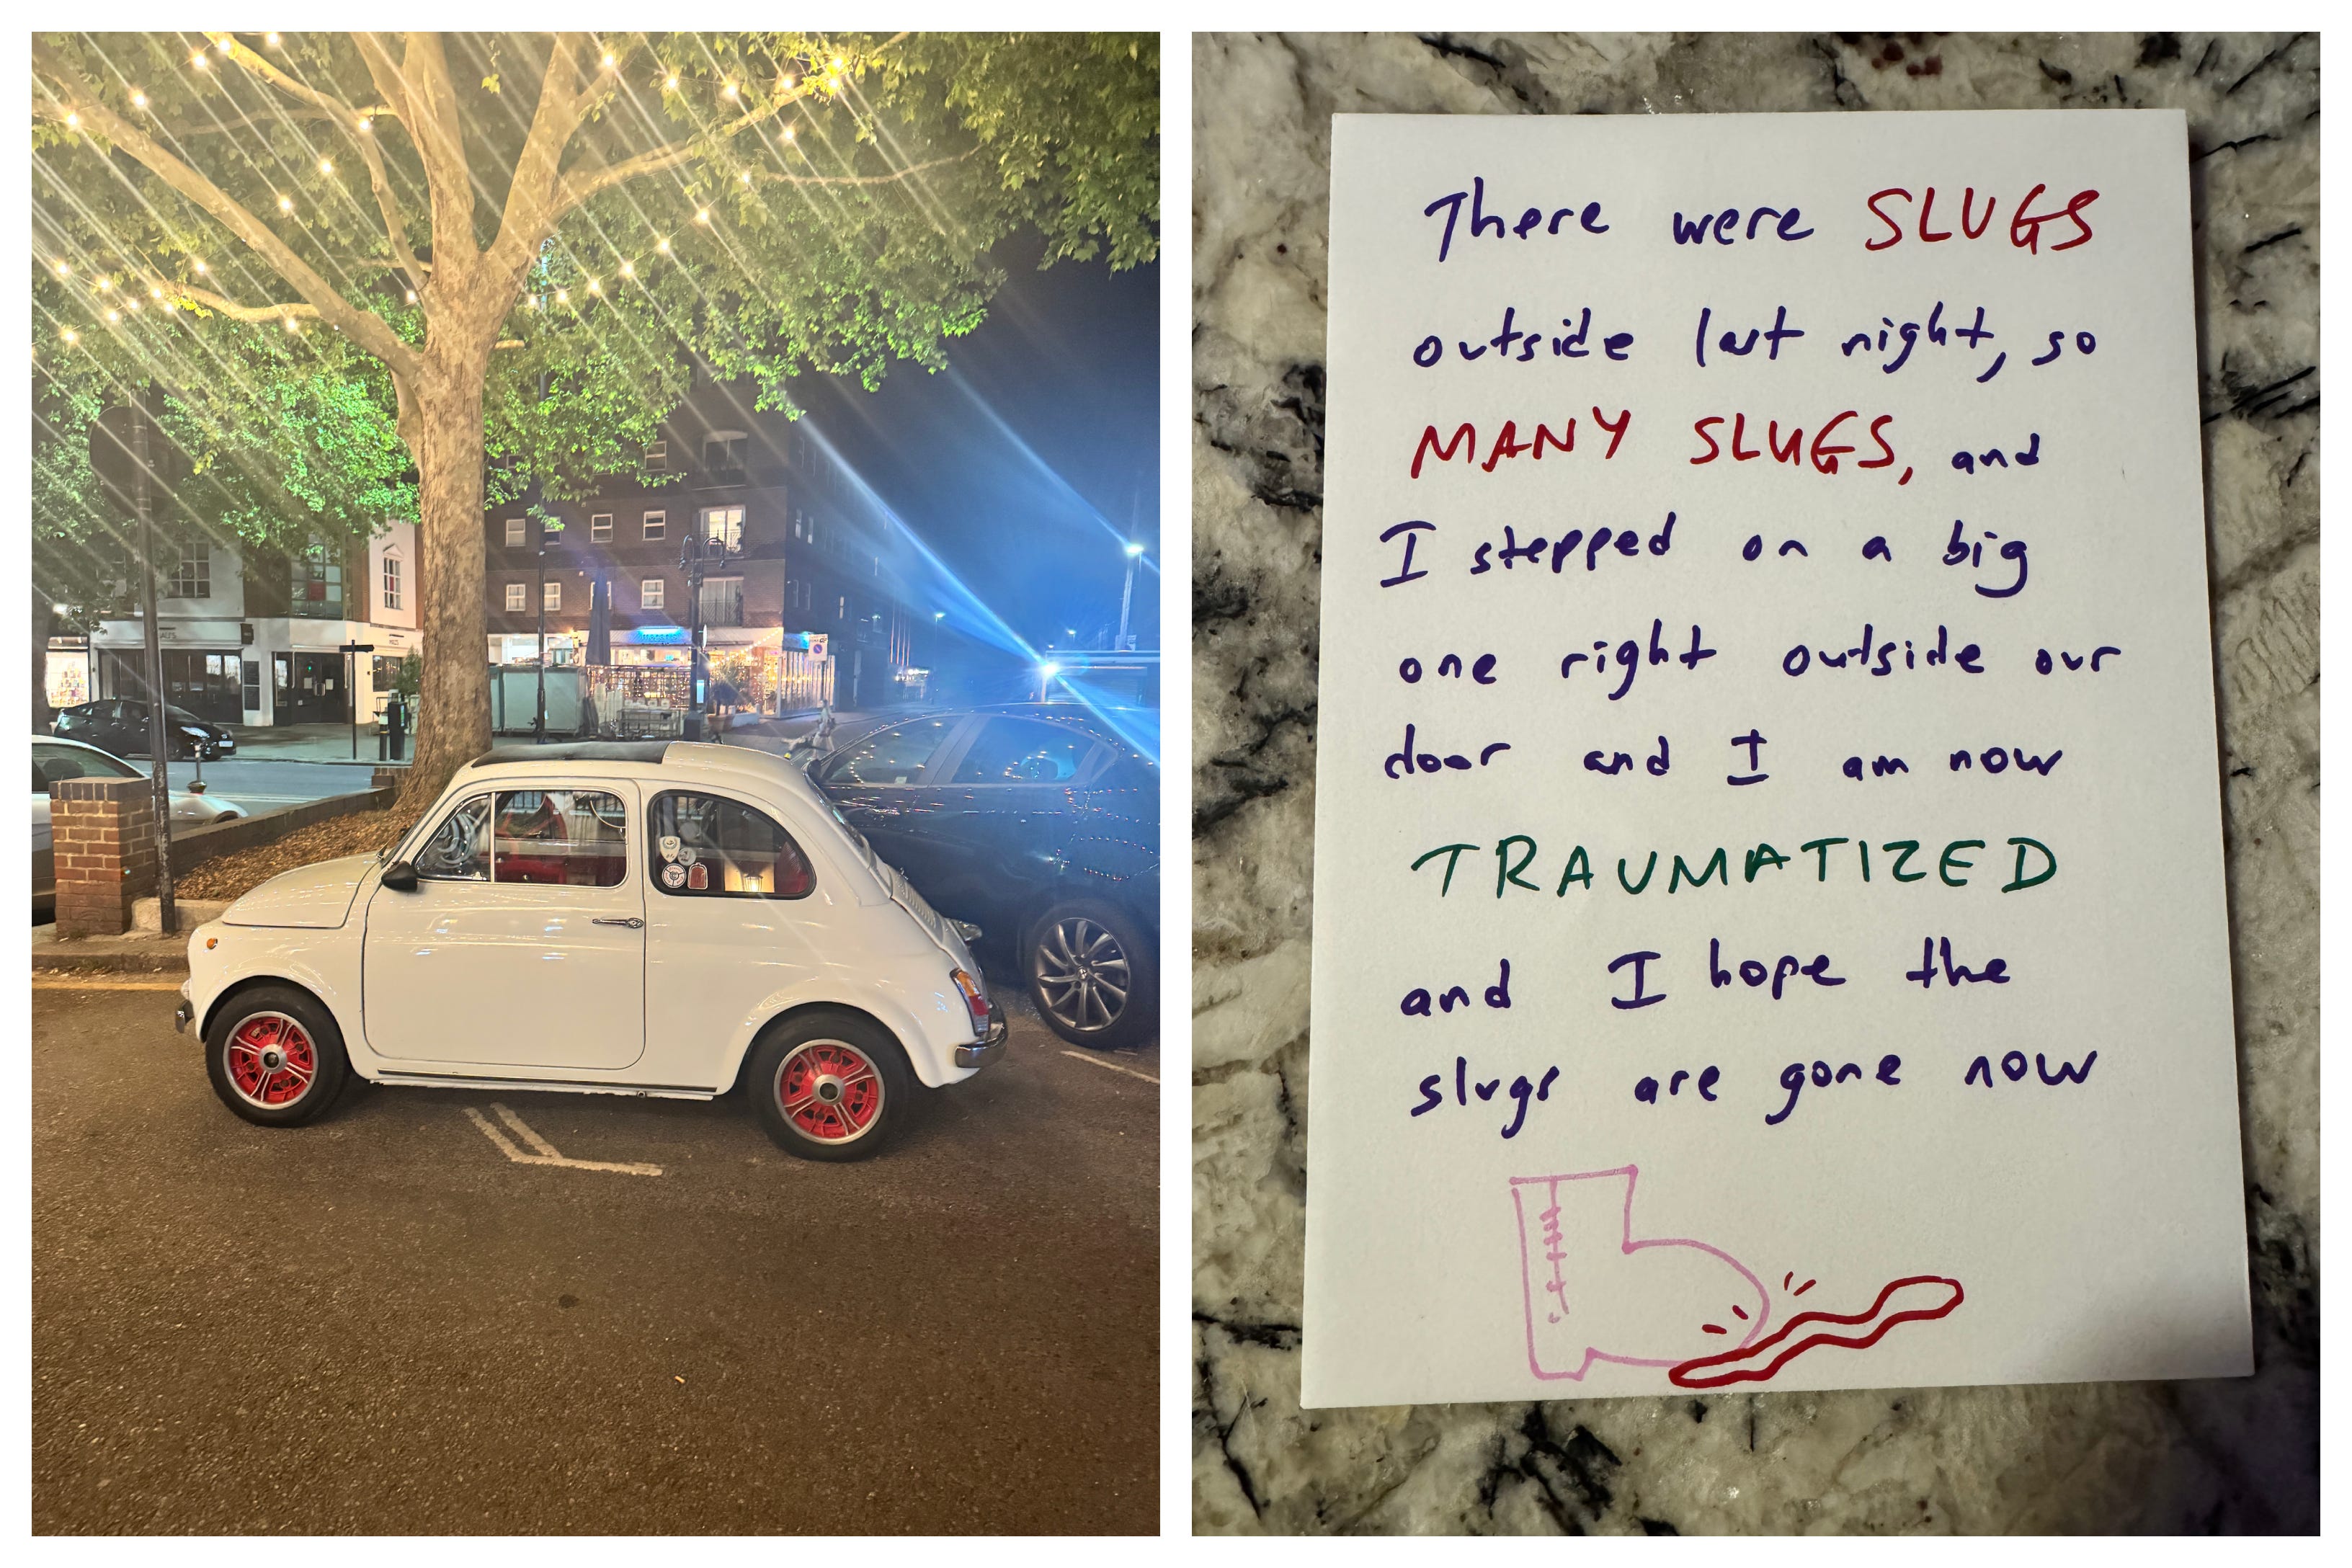 There were SLUGS
outside last night, so
MANY SLUGS, and
I stepped on a big
one right outside our
door and I am now
TRAUMATIZED
and I hope the
slugs are gone now